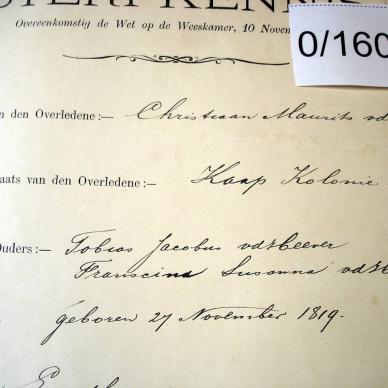 STERFKENNIS
Overeenkomstig de Wet op de Weeskamer, 10 Novem
0/160
an den Overledene:— Christiaan Maurits vd
aats van den Overledene:— Kaap Kolonie
Ouders:— Tobias Jacobus vdHeever
Franscina Susanna vdH
geboren 27 November 1819.